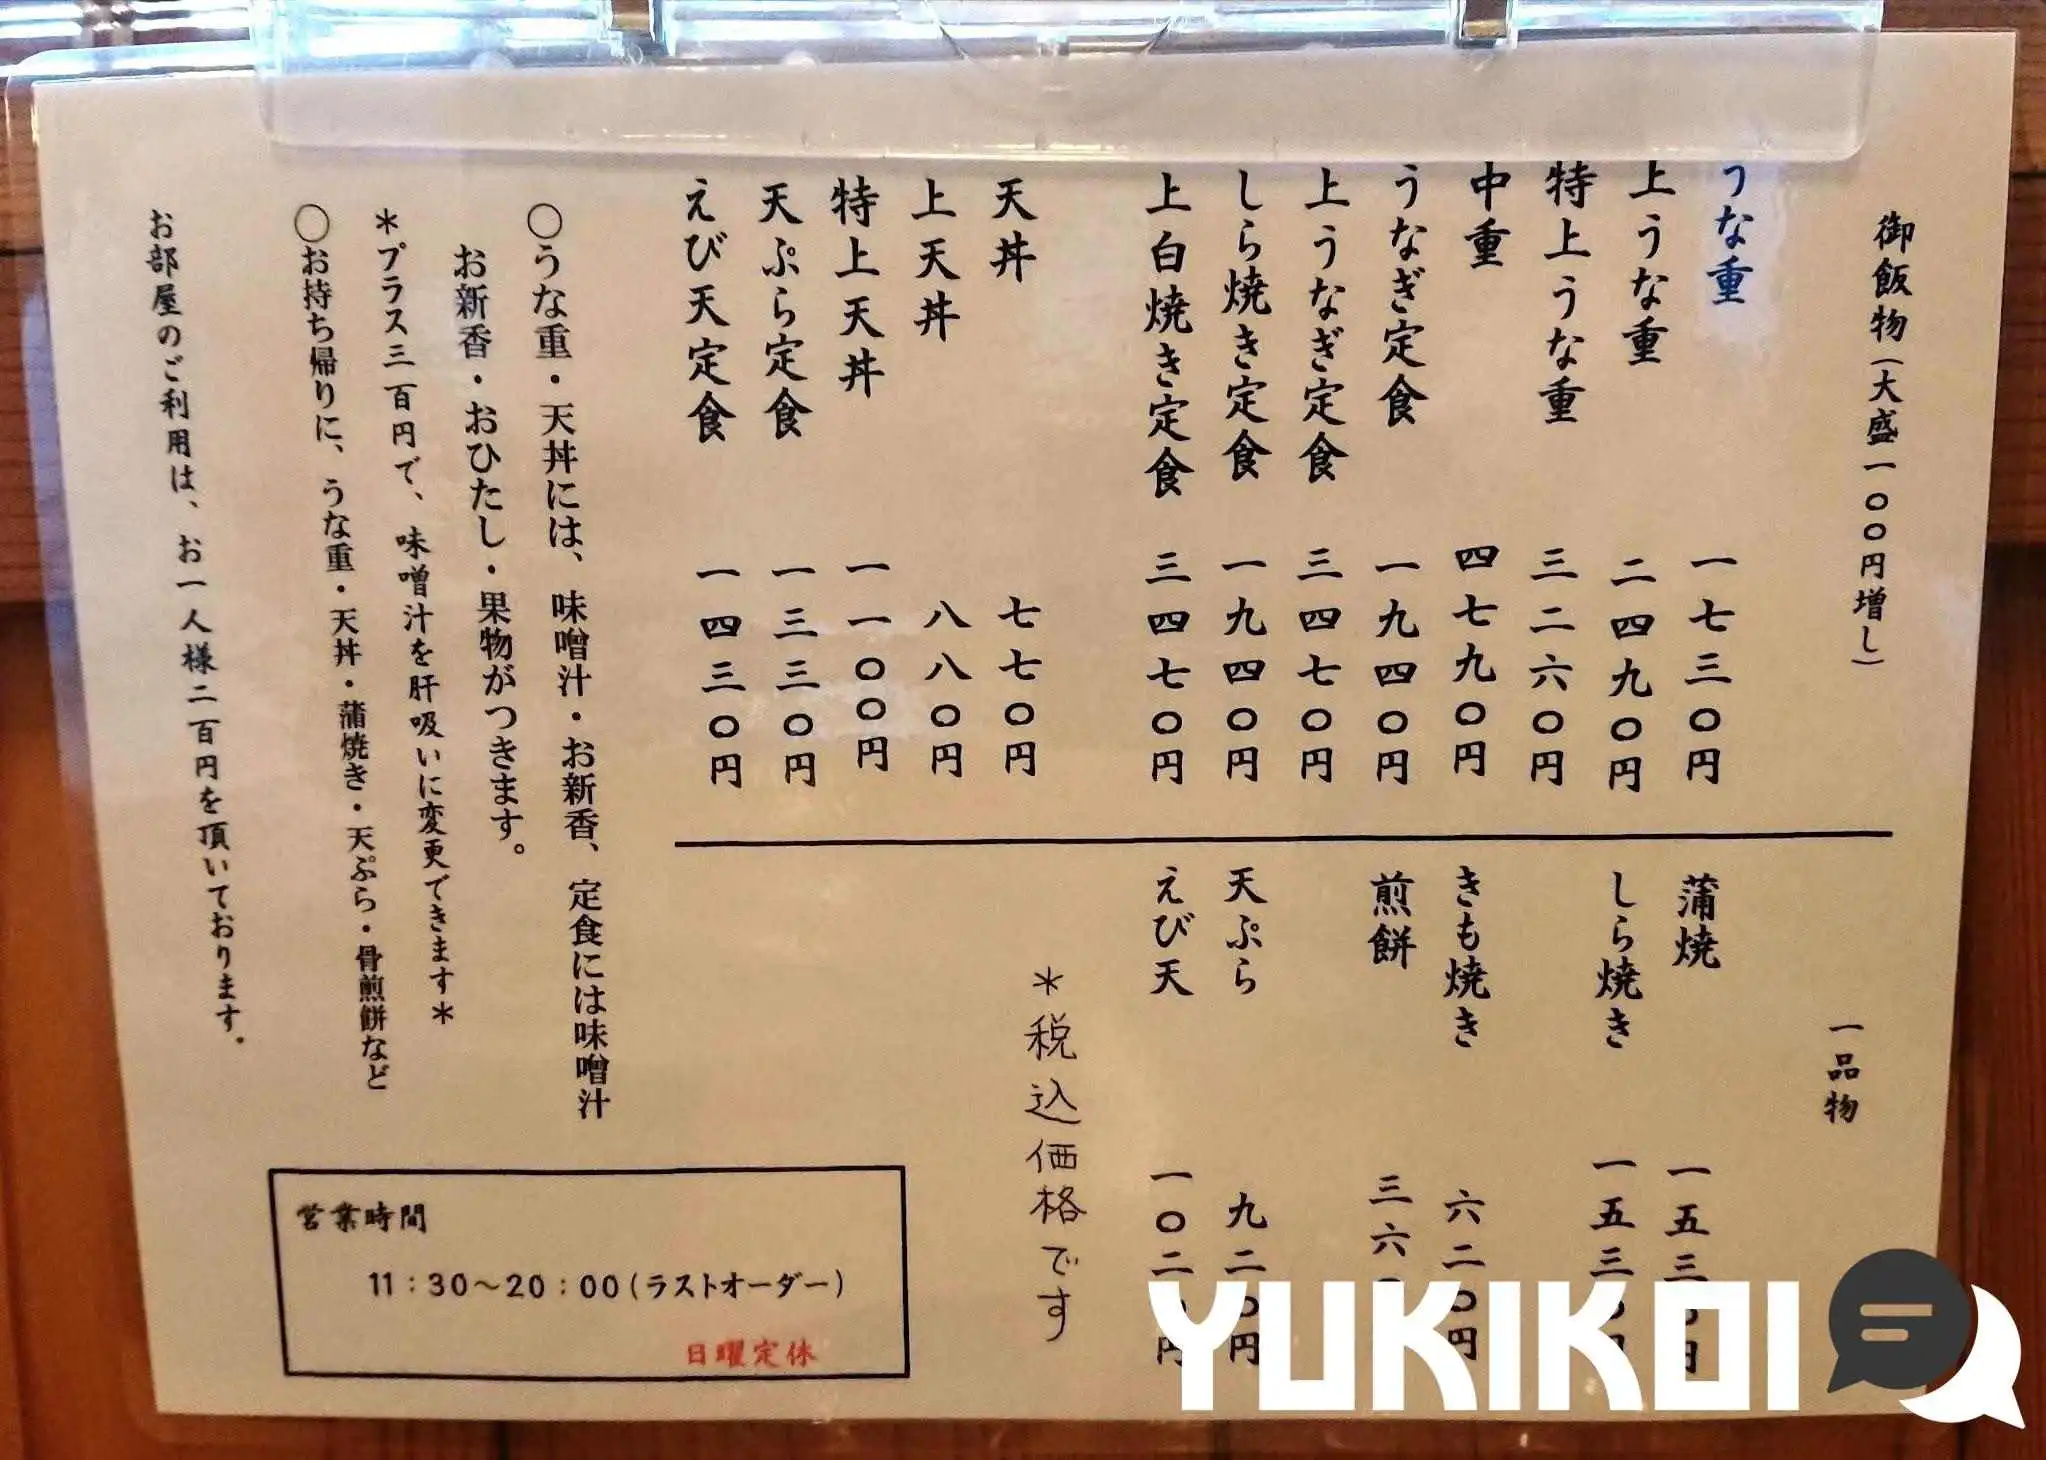 御飯物(大盛一〇〇円増し)
うな重 一七三〇円
上うな重 二四九〇円
特上うな重 三二六〇円
中重 四七九〇円
うなぎ定食 一九四〇円
上うなぎ定食 三四七〇円
しら焼き定食 一九四〇円
上白焼き定食 三四七〇円
天丼 七七〇円
上天丼 八八〇円
特上天丼 一一〇〇円
天ぷら定食 一三三〇円
えび天定食 一四三〇円
一品物
蒲焼 一五三〇円
しら焼き 一五三〇円
きも焼き 六二〇円
煎餅 三六
天ぷら 九二〇円
えび天 一〇二〇円
*税込価格です
〇うな重・天丼には、味噌汁・お新香、定食には味噌汁
お新香・おひたし・果物がつきます。
*プラス三百円で、味噌汁を肝吸いに変更できます*
〇お持ち帰りに、うな重・天丼・蒲焼き・天ぷら・骨煎餅など
お部屋のご利用は、お一人様二百円を頂いております.
営業時間
11:30～20:00(ラストオーダー)
日曜定休
YUKIKOI